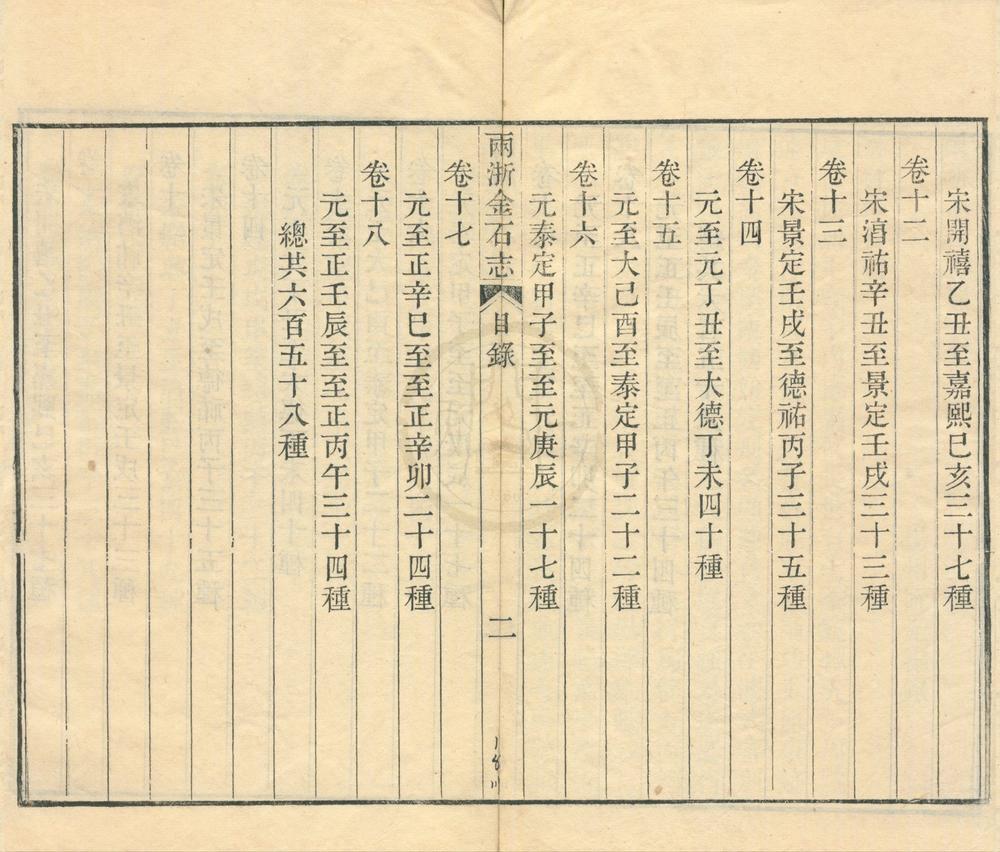 宋開禧乙丑至嘉熙己亥三十七種
卷十二
宋湻祐辛丑至景定壬戌三十三種
卷十三
宋景定壬戌至德祐丙子三十五種
卷十四
元至元丁丑至大德丁未四十種
卷十五
元至大己酉至泰定甲子二十二種
卷十六
元泰定甲子至至元庚辰一十七種
兩浙金石志 目錄 二
卷十七
元至正辛巳至至正辛卯二十四種
卷十八
元至正壬辰至至正丙午三十四種
總共六百五十八種